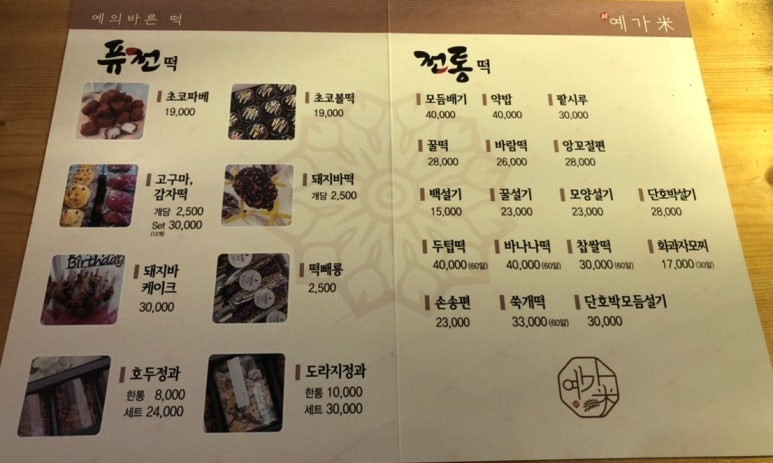 예의바른 떡
예가米
퓨전떡
초코파베
19,000
초코볼떡
19,000
고구마,
감자떡
개당 2,500
Set 30,000
(12개)
돼지바떡
개당 2,500
Birthday
돼지바
케이크
30,000
떡빼롱
2,500
호두정과
한통 8,000
세트 24,000
도라지정과
한통 10,000
세트 30,000
전통떡
모듬배기 약밥 팥시루
40,000 40,000 30,000
꿀떡 바람떡 앙꼬절편
28,000 26,000 28,000
백설기 꿀설기 모양설기 단호박설기
15,000 23,000 23,000 28,000
두텁떡 바나나떡 찹쌀떡 화과자모찌
40,000(60알) 40,000(60알) 30,000(60알) 17,000(30알)
손송편 쑥개떡 단호박모듬설기
23,000 33,000(60알) 30,000
예가米